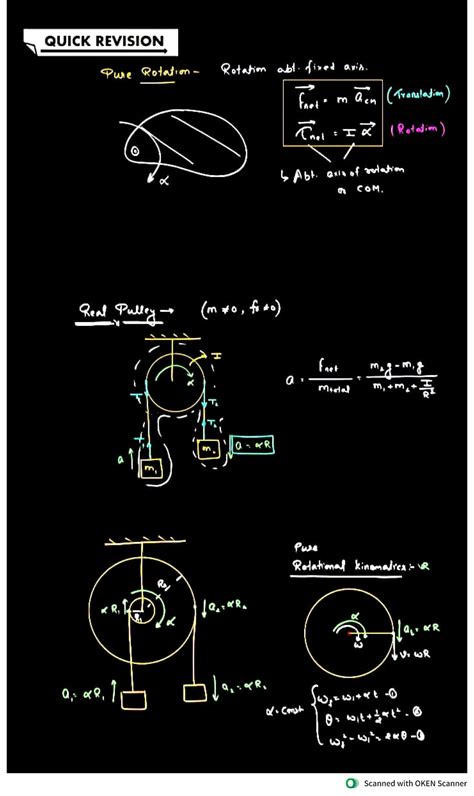 QUICK REVISION
Pure Rotation - Rotation abt. fixed axis.
F⃗net = m a⃗cm (Translation)
τ⃗net = I α⃗ (Rotation)
↳ Abt. axis of rotation
or COM.
α
Real Pulley → (m≠0, fs≠0)
I
α
T₂
T₂
a
m₁
m₂
a = αR
a = Fnet / mtotal = m₂g - m₁g / m₁ + m₂ + I/R²
Pure
Rotational kinematics :-
R₂
αR₁
R₁
α
a₂ = αR₂
a₁ = αR₁
a₂ = αR₂
α
ω
at = αR
v = ωR
α = const
ωf = ωi + αt - ①
θ = ωit + ½αt² - ②
ωf² - ωi² = 2αθ - ③
Scanned with OKEN Scanner